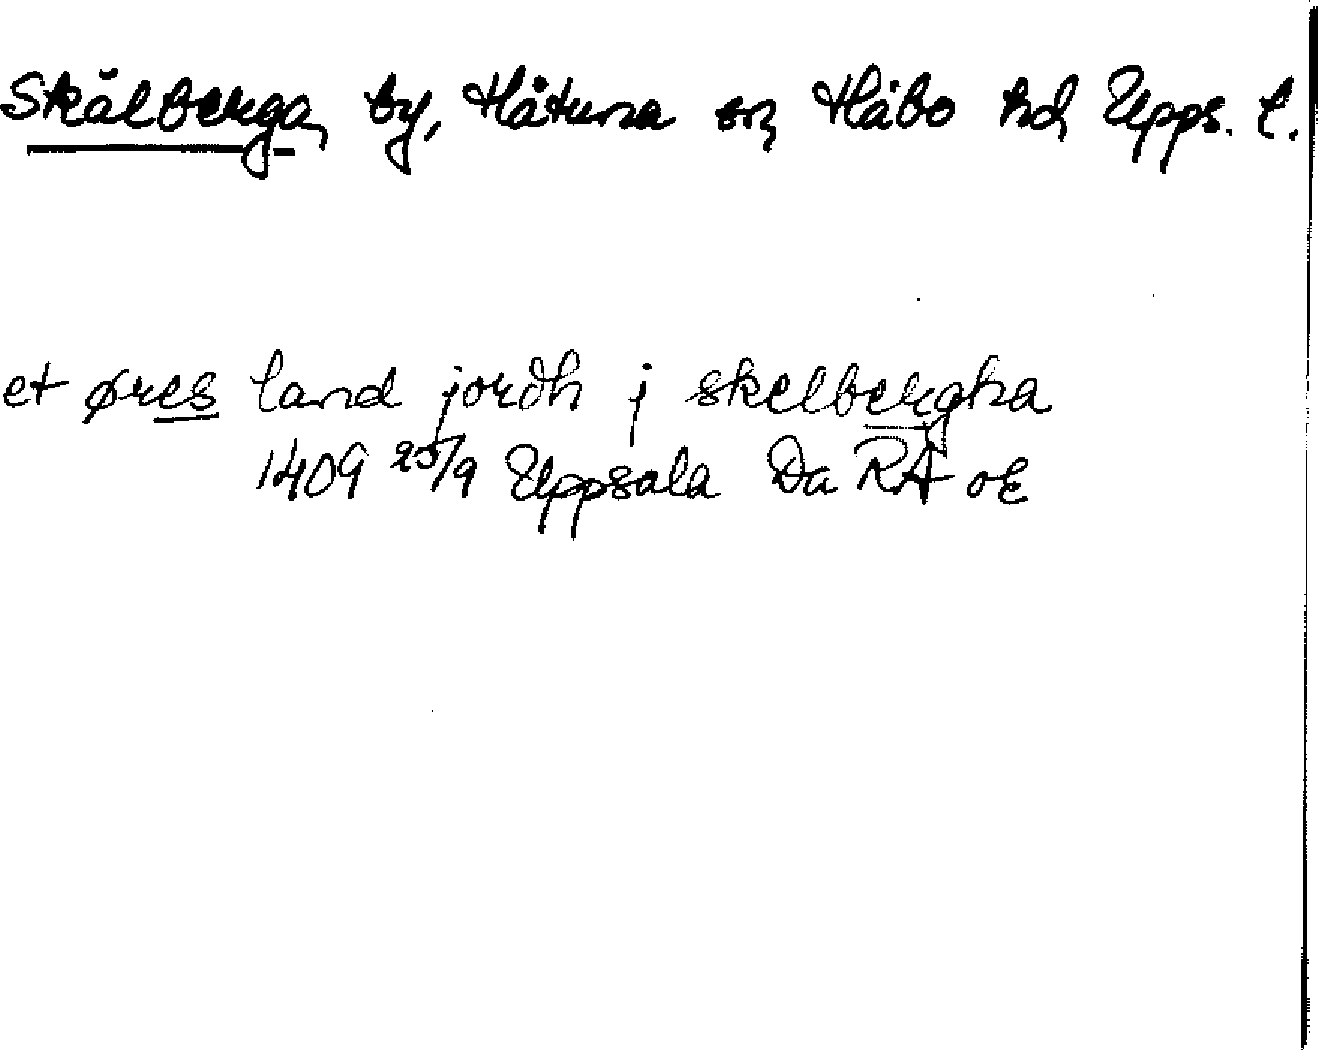 Skälberga, by, Håtuna sn, Håbo hd, Upps. l.
et øres land jordh j skelbergha
1409 25/9 Uppsala Da RA ok